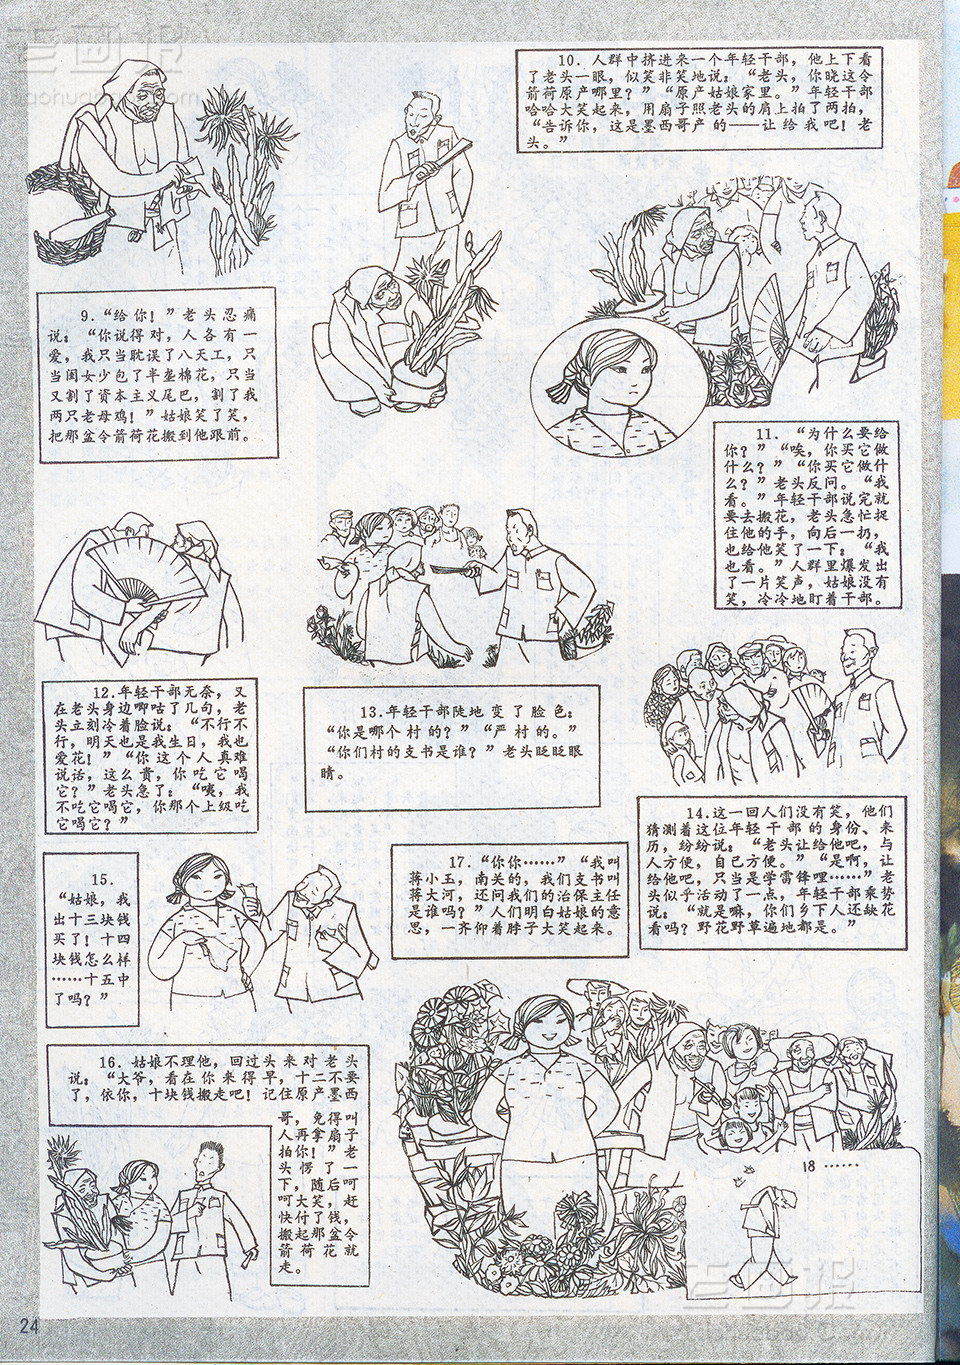 9.“给你！”老头忍痛
说：“你说得对，人各有一
爱，我只当耽误了八天工，只
当闺女少包了半垄棉花，只当
又割了资本主义尾巴，割了我
两只老母鸡！”姑娘笑了笑，
把那盆令箭荷花搬到他跟前。
10．人群中挤进来一个年轻干部，他上下看
了老头一眼，似笑非笑地说：“老头，你晓这令
箭荷原产哪里？”“原产姑娘家里。”年轻干部
哈哈大笑起来，用扇子照老头的肩上拍了两拍，
“告诉你，这是墨西哥产的——让给我吧！老
头。”
11．“为什么要给
你？”“唉，你买它做
什么？”“你买它做什
么？”老头反问。“我
看。”年轻干部说完就
要去搬花，老头急忙捉
住他的手，向后一扔，
也给他笑了一下：“我
也看。”人群里爆发出
了一片笑声，姑娘没有
笑，冷冷地盯着干部。
12.年轻干部无奈，又
在老头身边唧咕了几句，老
头立刻冷着脸说：“不行不
行，明天也是我生日，我也
爱花！”“你这个人真难
说话，这么贵，你吃它喝
它？”老头急了：“咦，我
不吃它喝它，你那个上级吃
它喝它？”
13.年轻干部陡地变了脸色：
“你是哪个村的？”“严村的。”
“你们村的支书是谁？”老头眨眨眼
睛。
14.这一回人们没有笑，他们
猜测着这位年轻干部的身份、来
历，纷纷说：“老头让给他吧，与
人方便，自己方便。”“是啊，让
给他吧，只当是学雷锋哩……”老
头似乎活动了一点，年轻干部乘势
说：“就是嘛，你们乡下人还缺花
看吗？野花野草遍地都是。”
15．
“姑娘，我
出十三块钱
买了！十四
块钱怎么样
……十五中
了吗？”
16．姑娘不理他，回过头来对老头
说：“大爷，看在你来得早，十二不要
了，依你，十块钱搬走吧！记住原产墨西
哥，免得叫
人再拿扇子
拍你！”老
头愣了一
下，随后呵
呵大笑，赶
快付了钱，
搬起那盆令
箭荷花就
走。
17．“你你……”“我叫
蒋小玉，南关的，我们支书叫
蒋大河，还问我们的治保主任
是谁吗？”人们明白姑娘的意
思，一齐仰着脖子大笑起来。
18……
24